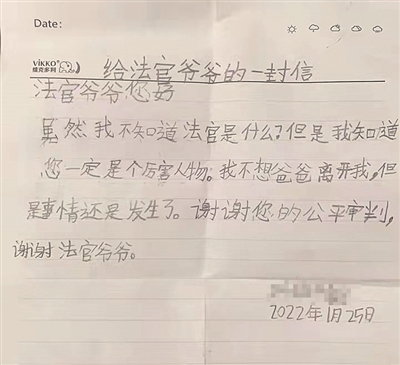 Date:
VIKKO
维克多利
给法官爷爷的一封信
法官爷爷您好
虽然我不知道法官是什么?但是我知道
您一定是个厉害人物。我不想爸爸离开我,但
是事情还是发生了。谢谢您的公平审判,
谢谢法官爷爷。
2022年1月25日